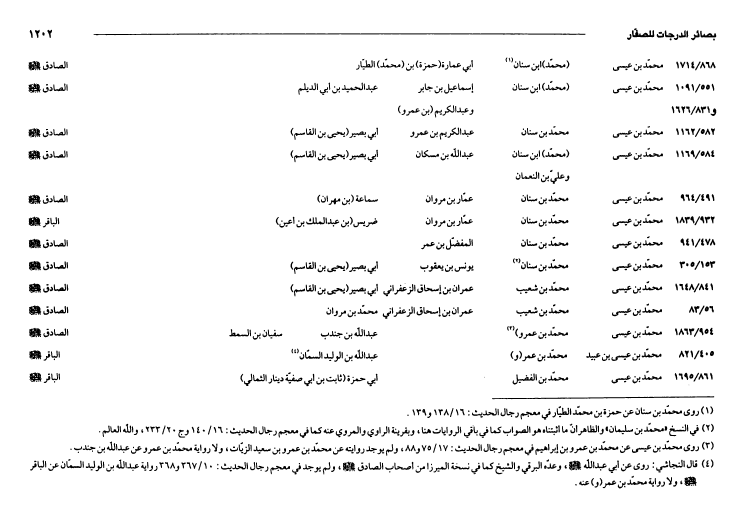 بصائر الدرجات للصفّار ١٢٠٢
١٧١٤/٨٦٨ محمّد بن عيسى (محمّد) ابن سنان(١) أبي عمارة (حمزة) بن (محمّد) الطيّار الصادق ﷺ
١٠٩١/٥٥١ محمّد بن عيسى (محمّد) ابن سنان إسماعيل بن جابر عبدالحميد بن أبي الديلم الصادق ﷺ
و١٦٢٦/٨٣١ وعبدالكريم (بن عمرو)
١١٦٢/٥٨٢ محمّد بن عيسى محمّد بن سنان عبدالكريم بن عمرو أبي بصير (يحيى بن القاسم) الصادق ﷺ
١١٦٩/٥٨٤ محمّد بن عيسى (محمّد) ابن سنان عبدالله بن مسكان أبي بصير (يحيى بن القاسم) الصادق ﷺ
وعليّ بن النعمان
٩٦٤/٤٩١ محمّد بن عيسى محمّد بن سنان عمّار بن مروان سماعة (بن مهران) الصادق ﷺ
١٨٣٩/٩٣٢ محمّد بن عيسى محمّد بن سنان عمّار بن مروان ضريس (بن عبدالملك بن أعين) الباقر ﷺ
٩٤١/٤٧٨ محمّد بن عيسى محمّد بن سنان المفضّل بن عمر الصادق ﷺ
٣٠٥/١٥٣ محمّد بن عيسى محمّد بن سنان(٢) يونس بن يعقوب أبي بصير (يحيى بن القاسم) الصادق ﷺ
١٦٤٨/٨٤١ محمّد بن عيسى محمّد بن شعيب عمران بن إسحاق الزعفراني أبي بصير (يحيى بن القاسم) الصادق ﷺ
٨٣/٥٦ محمّد بن عيسى محمّد بن شعيب عمران بن إسحاق الزعفراني محمّد بن مروان الصادق ﷺ
١٨٦٣/٩٥٤ محمّد بن عيسى محمّد بن عمرو(٣) عبدالله بن جندب سفيان بن السمط الصادق ﷺ
٨٢١/٤٠٥ محمّد بن عيسى بن عبيد محمّد بن عمر(و) عبدالله بن الوليد السمّان(٤) الباقر ﷺ
١٦٩٥/٨٦١ محمّد بن عيسى محمّد بن الفضيل أبي حمزة (ثابت بن أبي صفيّة دينار الثمالي) الباقر ﷺ
(١) روى محمّد بن سنان عن حمزة بن محمّد الطيّار في معجم رجال الحديث : ١٣٨/١٦ و١٣٩ .
(٢) في النسخ «محمّد بن سليمان» والظاهر أنّ ما أثبتناه هو الصواب كما في باقي الروايات هنا ، وبقرينة الراوي والمروي عنه كما في معجم رجال الحديث : ١٤٠/١٦ وج ٢٣٣/٢٠ ، والله العالم .
(٣) روى محمّد بن عيسى عن محمّد بن عمرو بن إبراهيم في معجم رجال الحديث : ٧٥/١٧ و٨٨ ، ولم يوجد روايته عن محمّد بن عمرو بن سعيد الزيّات ، ولا رواية محمّد بن عمرو عن عبدالله بن جندب .
(٤) قال النجاشي : روى عن أبي عبدالله ﷺ ، وعدّه البرقي والشيخ كما في نسخة الميرزا من أصحاب الصادق ﷺ ، ولم يوجد في معجم رجال الحديث : ٣٦٧/١٠ و٣٦٨ رواية عبدالله بن الوليد السمّان عن الباقر
ﷺ ، ولا رواية محمّد بن عمر(و) عنه .